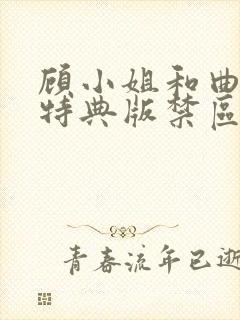 顾小姐和曲
特典版禁區
青春流年已逝